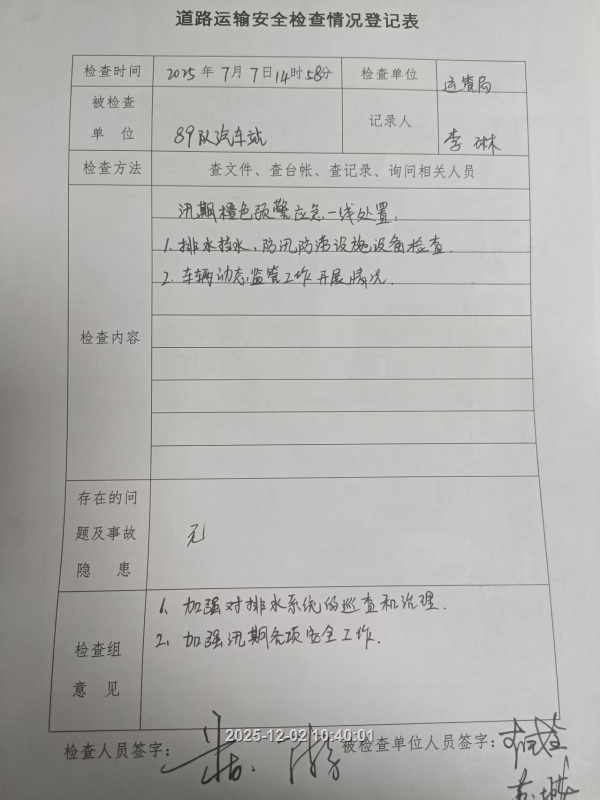 道路运输安全检查情况登记表
检查时间 2025年7月7日14时58分 检查单位 运管局
被检查
单 位 89队汽车站 记录人 李琳
检查方法 查文件、查台帐、查记录、询问相关人员
检查内容
汛期橙色预警应急一线处置:
1. 排水挡水、防汛防涝设施设备检查.
2. 车辆动态监管工作开展情况.
存在的问
题及事故
隐 患
无
检查组
意 见
1. 加强对排水系统的巡查和治理.
2. 加强汛期各项安全工作.
2025-12-02 10:40:01
检查人员签字: 被检查单位人员签字: